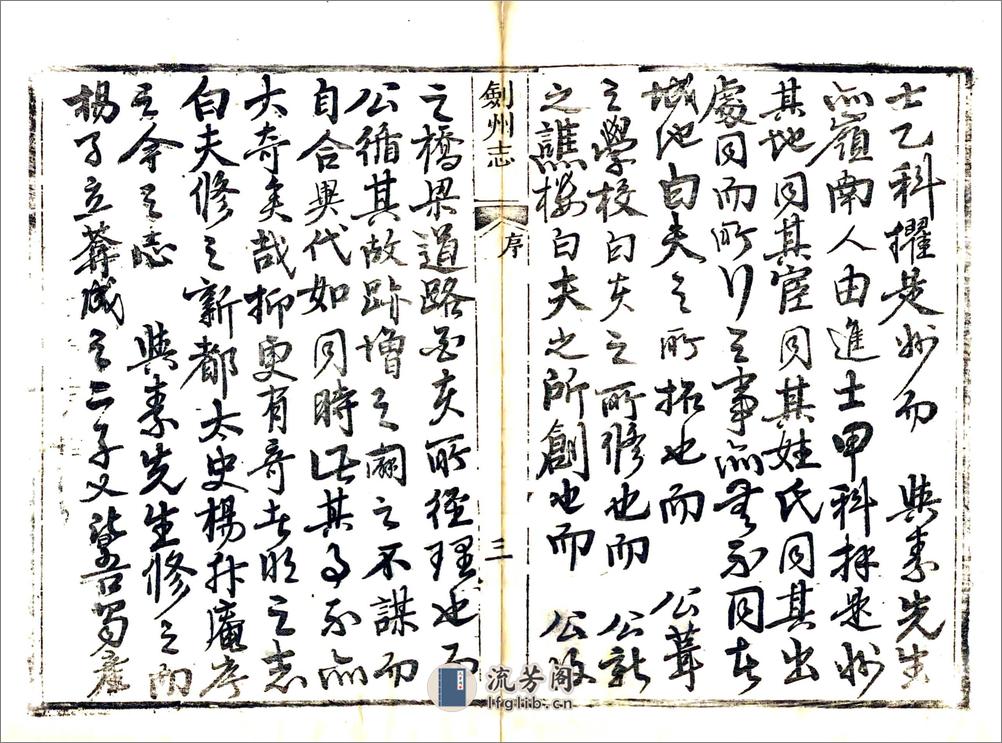 士乙科擢是州而 與素先生
亦嶺南人由進士甲科擇是州
其地同其宦同其姓氏同其出
處同而所行之事亦無不同在
城池白夫之所拓也而 公葺
之學校白夫之所修也而 公新
之譙樓白夫之所創也而 公改
劍州志 序 三
之橋梁道路白夫所徑理也而
公循其故跡增之闢之不謀而
自合異代如同時此其事不亦
大奇矣哉抑更有奇者明之志
白夫修之新都太史楊升庵序
之今之志 與素先生修之而
楊子立葊成之二子又皆吾蜀產
流芳阁
lfglib.cn